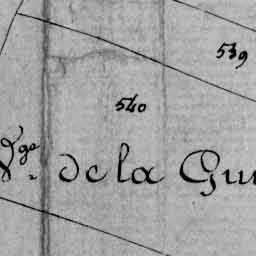 539
540
Vge. de la Gui